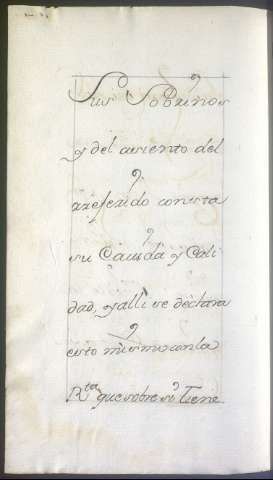 Sus Sobrinos
y del asiento del
rreferido consta
su Causda y Cali
dad, y alli se declara
esto mismo con la
R.ta que sobre si Tiene